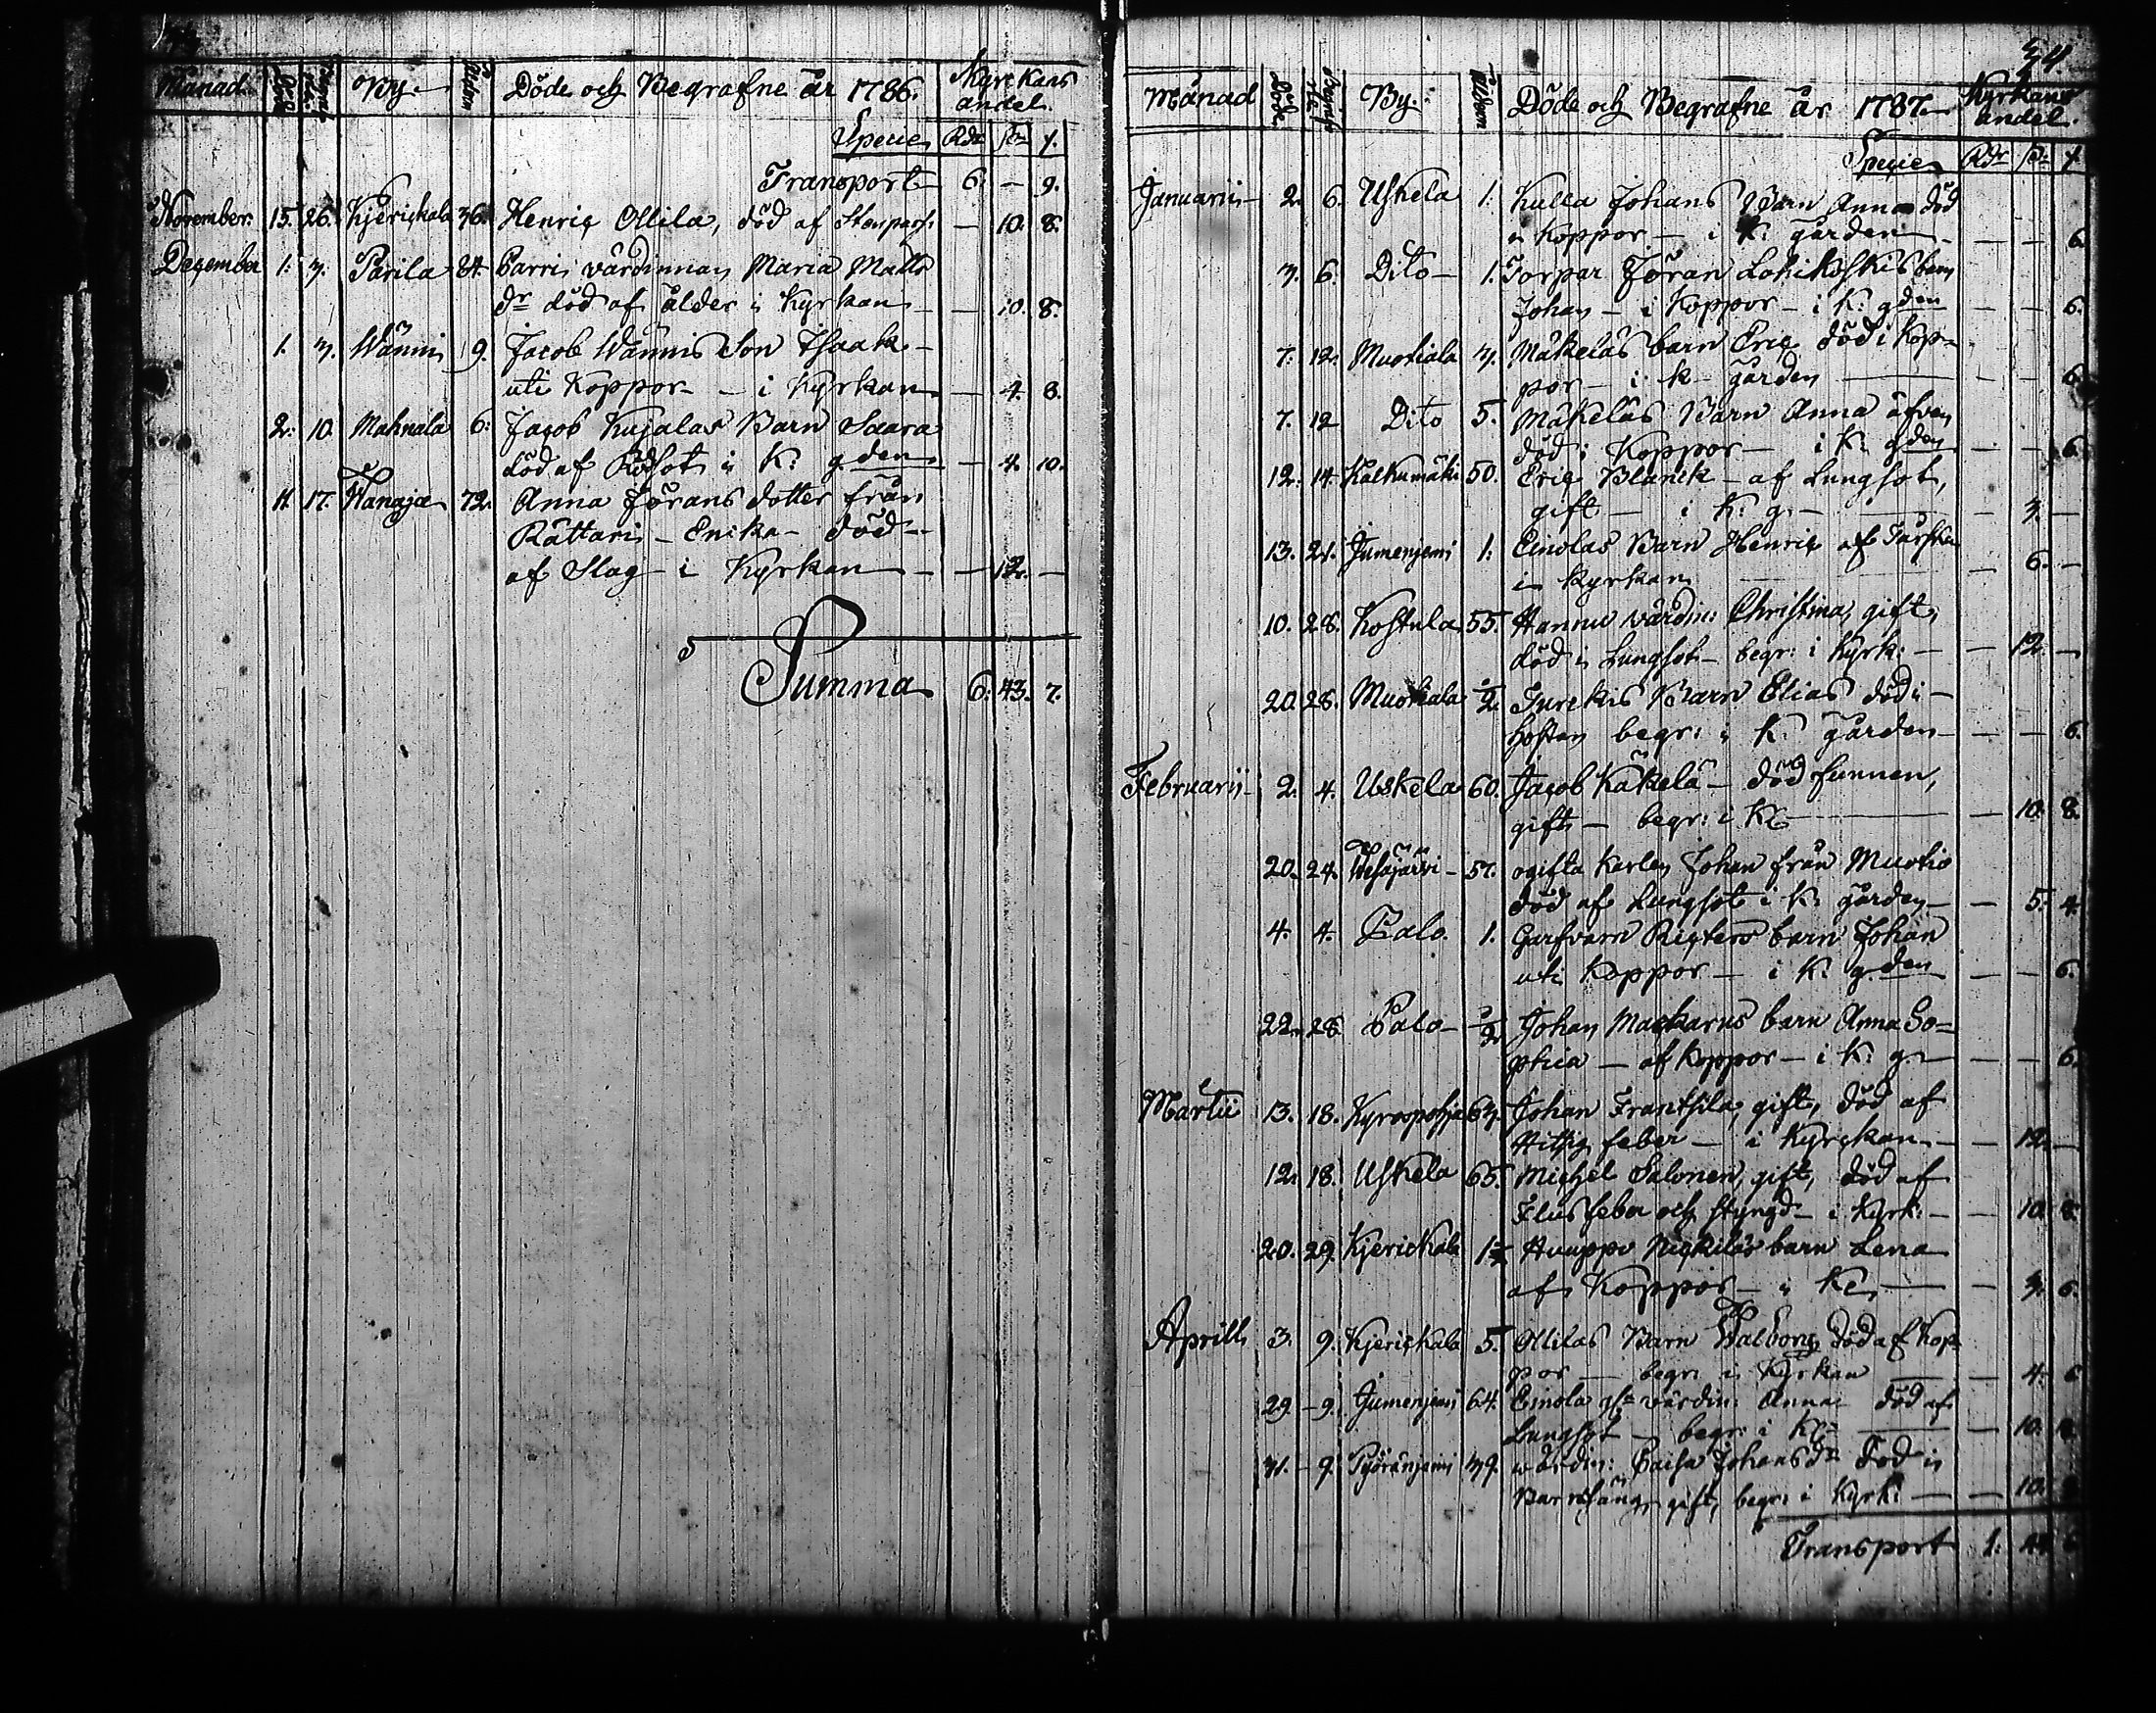 Månad. Död Begraf. By. Åldern Döde och Begrafne år 1786. Kyrckans
andel.
Specie Rdr sk. r.
Transport 6. — 9.
November. 15. 26. Kjerickala 36. Henric Ollila, död af — 10. 8.
December 1. 3. Parila 84 Parri värdinnan Maria Matts
dr död af ålder i Kyrkan — 10. 8.
1. 3. Wänni 9. Jacob Wännis Son Isaak —
uti Koppor — i Kyrkan — 4. 8.
2. 10. Mahnala 6. Jacob Kujalas Barn Saara
död af Rödsot i K: gden — 4. 10.
11. 17. Wanaja 72. Anna Jörans dotter från
Rättari — Enika — död —
af Slag — i Kyrkan — — 12. —
Summa 6. 43. 7.
54.
Månad Döde Begrafne By. Åldern Döde och Begrafne år 1787. Kyrkans
andel.
Specie Rdr sk. r
Januarii — 2. 6. Uskela 1. Kulla Johans Barn Anna död
i Koppor — i K: gården — — — 6.
3. 6. Dito — 1. Torpar Jöran Lohikoskis barn
Johan — i Koppor — i K: gden — — 6.
7. 12. Muotiala 3. Mäkeläs barn Eric död i Kop-
por — i K — gården — — — 6.
7. 12 Dito 5. Mäkeläs Barn Anna äfven
död i Koppor — i K: gden — — 6.
12. 14. Kalkunmäki 50. Eric Blanck — af Lungsot,
gift — i K: g. — — 3. —
13. 21. Jumenjemi 1. Einolas Barn Henric af
i Kyrkan — 6. —
10. 28. Kostula 55. Hannu värdin: Christina, gift,
död i Lungsot — begr: i Kyrk: — — 12. —
20. 28. Muotiala 1/2 Jurckis Barn Elias död i —
hostan begr: i K: gården — — — 6.
Februarii — 2. 4. Uskela 60. Jacob Käkelä — död funnen,
gift — begr: i K: — — 10. 8.
20. 24. Wesajärvi — 57. ogifta karlen Johan från Muotio
död af Lungsot i K: gården — — 5. 4.
4. 4. Palo. 1. Garfvarn Ricters barn Johan
uti Koppor — i K: gden — — 6.
22. 28 Palo — 1/2 Johan Mackarus barn Anna So-
phia — af Koppor — i K: g. — — — 6.
Martii 13. 18. Kyröspohja 63. Johan Frantsila, gift, död af
Hitsig feber — i Kyrckan — — 12. —
12. 18. Uskela 65. Michel Salonen, gift, död af
Flussfeber och styngd — i Kyrk: — — 10. 8.
20. 29. Kjerickala 1 1/2 Huuppo Nickiläs barn Lena
af Koppor — i K: — — 3. 6.
Aprill 3. 9. Kjerickala 5. Ollilas Barn Walborg död af Kop-
por — begr: i Kyrkan — — 4. 6
29. — 9. Jumenjemi 64. Einola värdin: Anna död af
Lungsot — begr: i K: — — 10. 8.
31. — 9. Pyöränjemi 39. wärdin: Caisa Johans dr död i
Barnsäng, gift, begr: i Kyrk: — — 10. 8
Transport 1. 6